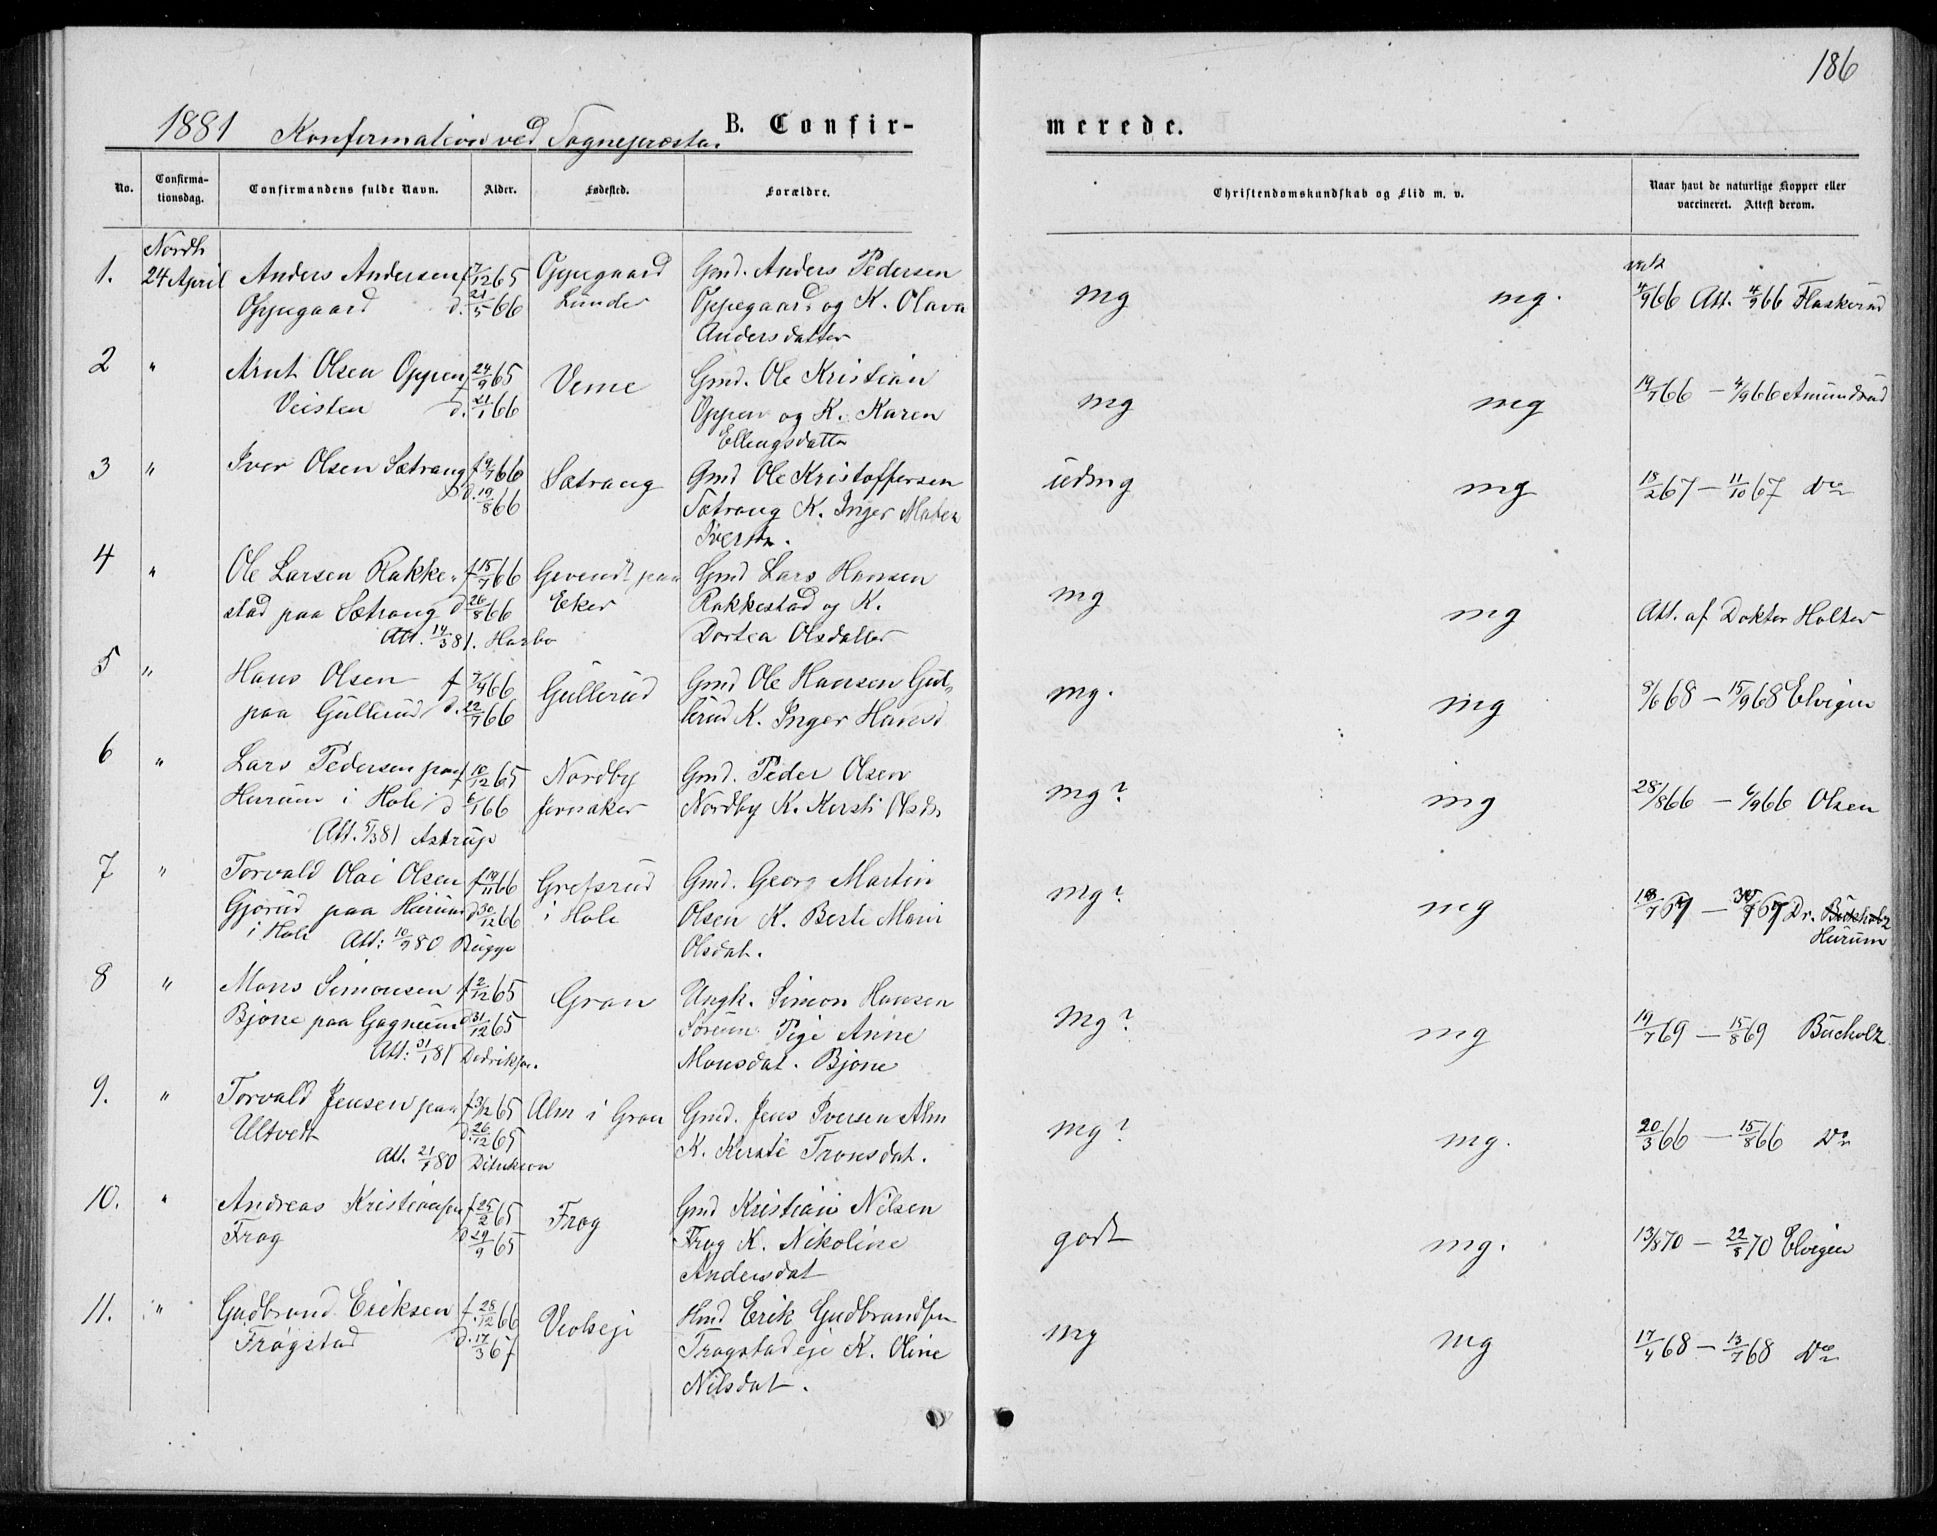 186
1881 Konfirmation ved Sognepræsten
B. Confir-
merede.
No. Confirma-tionsdag. Confirmandens fulde Navn. Alder. Fødested. Forældre. Christendomskundskab og Flid m. v. Naar havt de naturlige Kopper eller vaccineret. Attest derom.
Nordh
1. 24 April Anders Andersen f 7/12 65 Oppegaard Gmd. Anders Pedersen mg mg. 4/9 66 Att. 4/9 66 Flaskerud
Oppegaard d. 21/5 66 Lunder Oppegaard og K. Olava
Andersdatter
2 " Arnt Olsen Oppen f 24/9 65 Veme Gmd. Ole Kristian mg mg 19/7 66 — 4/9 66 Amundrud
Veisten d. 21/1 66 Oppen og K. Karen
Ellingsdatter
3 " Iver Olsen Sætrang f 9/7 66 Sætrang Gmd Ole Kristoffersen udmg mg 18/2 67 — 11/10 67 Do
d. 19/8 66 Sætrang K. Inger Maten
Iversdn.
4 " Ole Larsen Rakke- f 15/7 66 Gevendt paa Gmd Lars Hansen mg mg Att. af Doktor Holter
stad paa Sætrang d 26/8 66 Eker Rakkestad og K.
Att. 14/3 81. Harbo Dortea Olsdatter
5 " Hans Olsen f 7/4 66 Gullerud Gmd Ole Hansen Gul- mg. mg 8/6 68 — 15/9 68 Elvigen
paa Gullerud d. 22/7 66 lerud K. Inger Hansd
6 " Lars Pedersen paa f 10/12 65 Nordby Gmd. Peder Olsen mg? mg 28/8 66 — 6/9 66 Olsen
Hurum i Hole d 6/1 66 Jevnaker Nordby K. Kersti Olsdr
Att. 5/3 81 Astrup
7 " Torvald Olai Olsen f 19/11 66 Grefsrud Gmd. Georg Martin mg? mg 18/7 67 — 30/7 67 Dr. Bucholz
Gjørud paa Hurum d 30/12 66 i Hole Olsen K. Berte Marie Hurum
i Hole Att: 10/9 80 Bugge Olsdat.
8 " Mons Simonsen f 2/12 65 Gran Ungk. Simon Hansen Mg? mg 19/7 69 — 15/8 69 Bucholz
Bjone paa Gagnum d 31/12 65 Sørum Pige Anne
Att: 31/1 81 Dedriksen. Monsdat. Bjone
9. " Torvald Jensen paa f 3/12 65 Alm i Gran Gmd. Jens Iversen Alm mg? mg. 20/3 66 — 15/8 66 Do
Ultvedt d. 26/12 65 K. Kersti Tronsdat.
Att. 21/7 80 Ditrikson
10. " Andreas Kristiansen f 25/2 65 Frog Gmd Kristian Nilsen godt mg. 13/8 70 — 22/8 70 Elvigen
Frog d 29/9 65 Frog K. Nikoline
Andersdat
11. " Gudbrand Eriksen f. 28/12 66 Veolseje Hmd Erik Gudbrandsen mg mg 17/4 68 — 13/7 68 Do
Frøgstad d. 17/3 67 Frogstadeje K. Oline
Nilsdat.